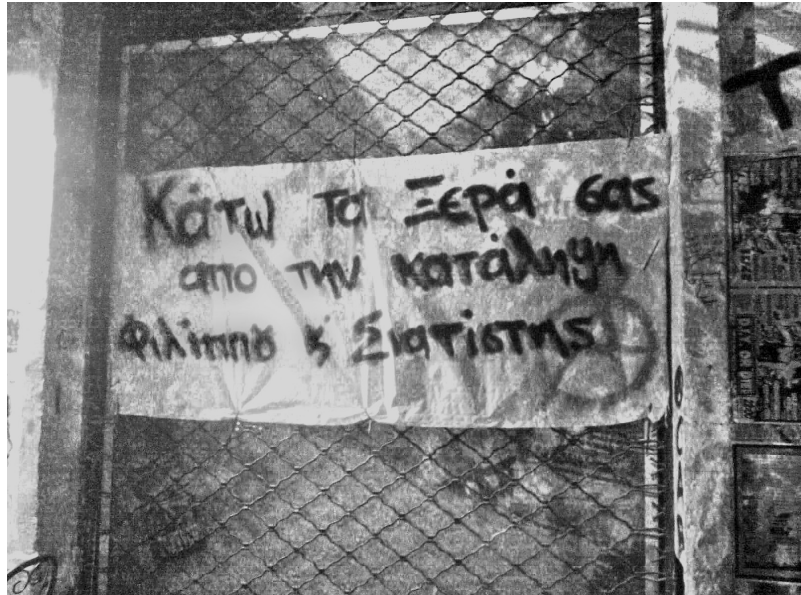 Κάτω τα Ξερά σας
απο την κατάληψη
Φιλίππου ϗ Σιατίστης